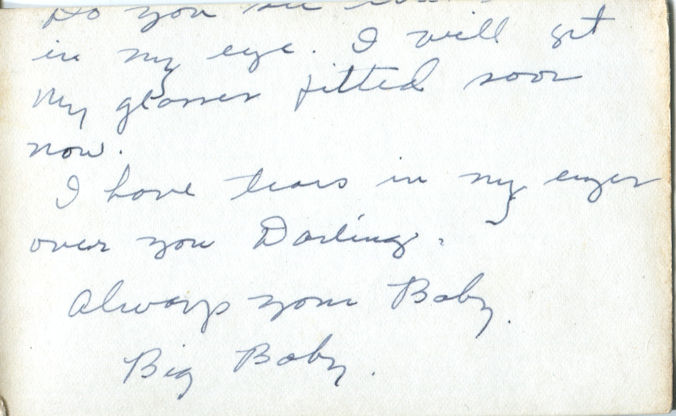 Do you see
in my eye. I will get
my glasses fitted soon
now.
I have tears in my eyes
over you Darling.
Always your Baby.
Big Baby.